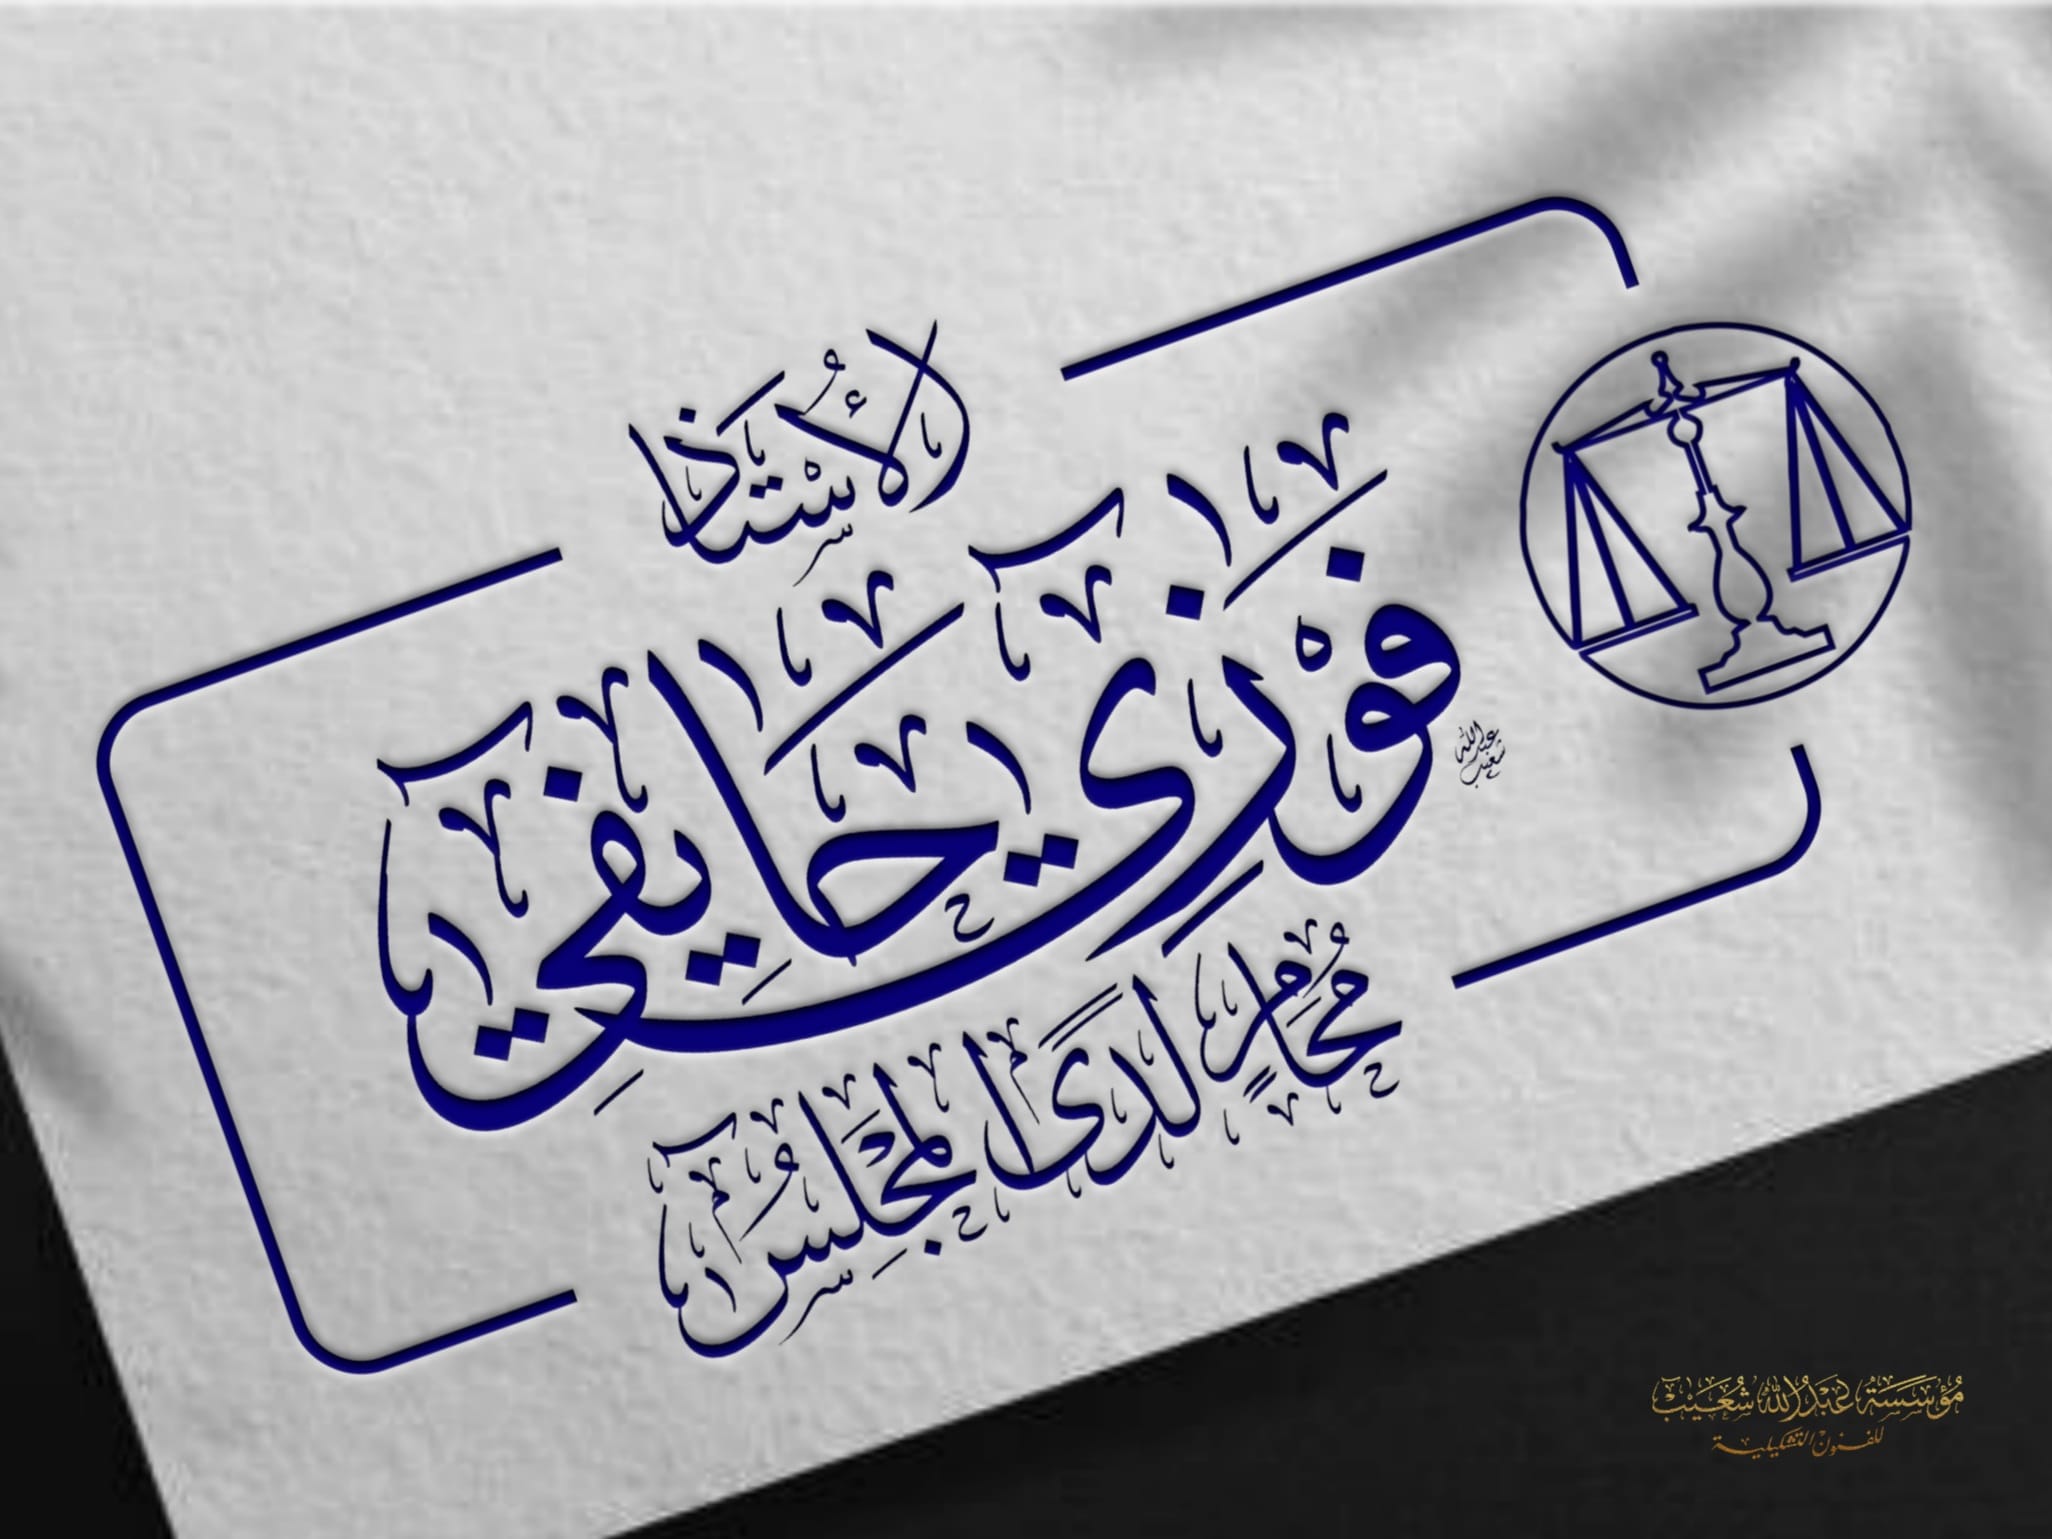 الأُستاذ
فوْزي حَايِفي
مُحَامٍ لَدَى المجْلِسُ
عبد الله شعيب
مُؤسَسَة عَبْدُ الله شُعَيب
للفنون التشكيلية